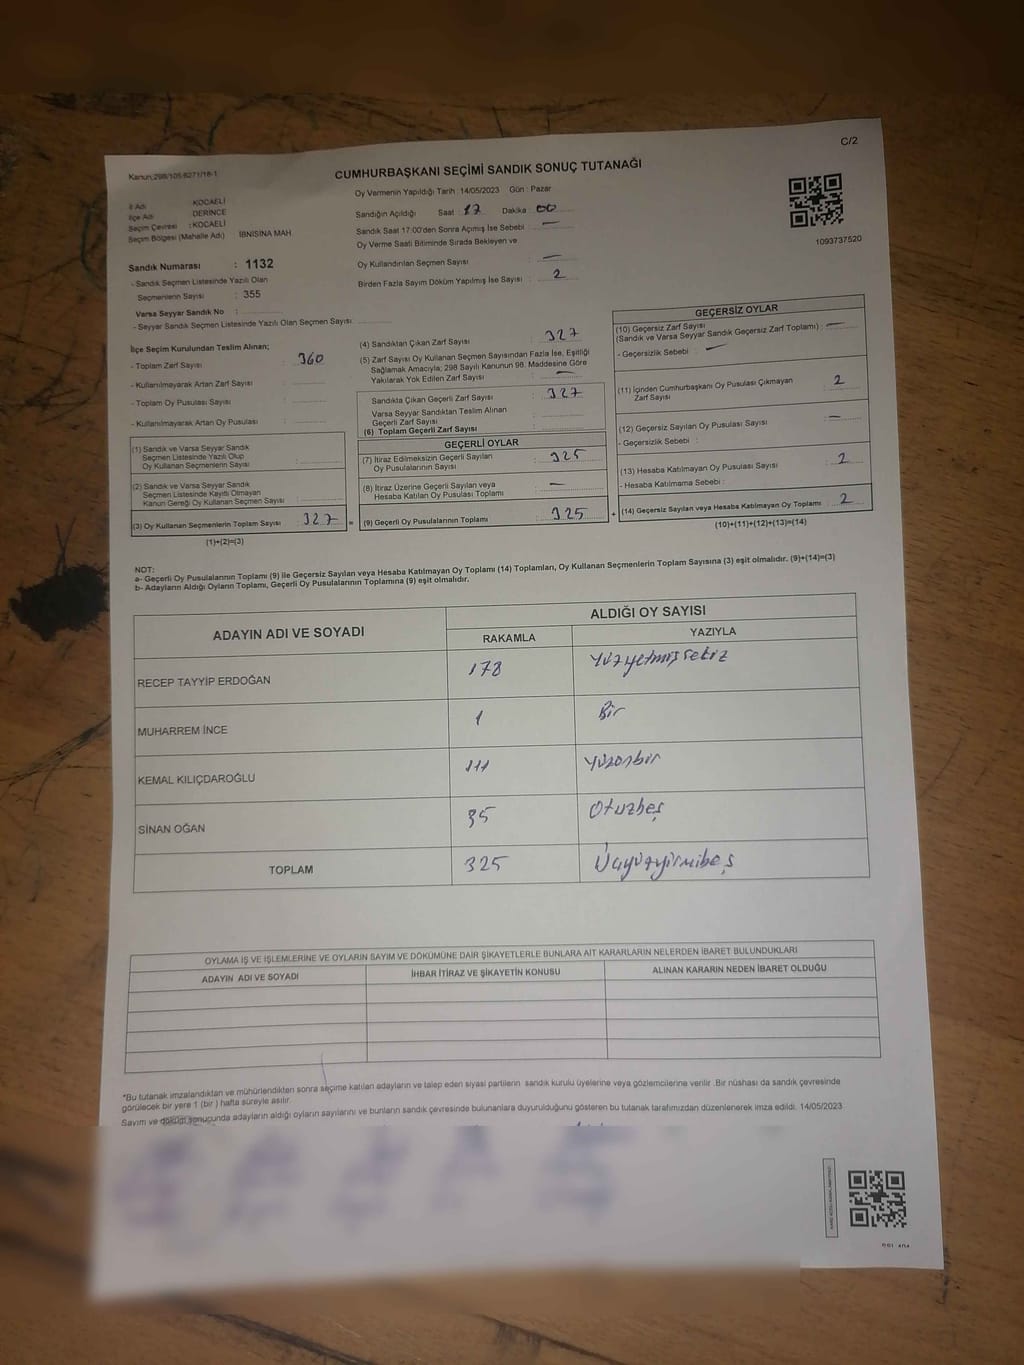 C/2
Kanun:298/105-6271/18-1
CUMHURBAŞKANI SEÇİMİ SANDIK SONUÇ TUTANAĞI
İl Adı : KOCAELİ
İlçe Adı : DERİNCE
Seçim Çevresi : KOCAELİ
Seçim Bölgesi (Mahalle Adı) İBNİSİNA MAH.
Sandık Numarası : 1132
- Sandık Seçmen Listesinde Yazılı Olan
Seçmenlerin Sayısı : 355
Varsa Seyyar Sandık No :
- Seyyar Sandık Seçmen Listesinde Yazılı Olan Seçmen Sayısı:
Oy Vermenin Yapıldığı Tarih : 14/05/2023 Gün : Pazar
Sandığın Açıldığı Saat : 17 Dakika : 00
Sandık Saat 17:00'den Sonra Açımış İse Sebebi : —
Oy Verme Saati Bitiminde Sırada Bekleyen ve
Oy Kullandırılan Seçmen Sayısı : —
Birden Fazla Sayım Döküm Yapılmış İse Sayısı : 2
1093737520
İlçe Seçim Kurulundan Teslim Alınan;
- Toplam Zarf Sayısı : 360
- Kullanılmayarak Artan Zarf Sayısı :
- Toplam Oy Pusulası Sayısı :
- Kullanılmayarak Artan Oy Pusulası :
(1) Sandık ve Varsa Seyyar Sandık
Seçmen Listesinde Yazılı Olup
Oy Kullanan Seçmenlerin Sayısı :
(2) Sandık ve Varsa Seyyar Sandık
Seçmen Listesinde Kayıtlı Olmayan
Kanun Gereği Oy Kullanan Seçmen Sayısı :
(3) Oy Kullanan Seçmenlerin Toplam Sayısı : 327 =
(1)+(2)=(3)
(4) Sandıktan Çıkan Zarf Sayısı : 327
(5) Zarf Sayısı Oy Kullanan Seçmen Sayısından Fazla İse, Eşitliği
Sağlamak Amacıyla; 298 Sayılı Kanunun 98. Maddesine Göre
Yakılarak Yok Edilen Zarf Sayısı : —
Sandıkta Çıkan Geçerli Zarf Sayısı : 327
Varsa Seyyar Sandıktan Teslim Alınan
Geçerli Zarf Sayısı :
(6) Toplam Geçerli Zarf Sayısı :
GEÇERLİ OYLAR
(7) İtiraz Edilmeksizin Geçerli Sayılan
Oy Pusulalarının Sayısı : 325
(8) İtiraz Üzerine Geçerli Sayılan veya
Hesaba Katılan Oy Pusulası Toplamı : —
(9) Geçerli Oy Pusulalarının Toplamı : 325 +
GEÇERSİZ OYLAR
(10) Geçersiz Zarf Sayısı
(Sandık ve Varsa Seyyar Sandık Geçersiz Zarf Toplamı) : —
- Geçersizlik Sebebi : —
(11) İçinden Cumhurbaşkanı Oy Pusulası Çıkmayan
Zarf Sayısı : 2
(12) Geçersiz Sayılan Oy Pusulası Sayısı : —
- Geçersizlik Sebebi :
(13) Hesaba Katılmayan Oy Pusulası Sayısı : 2
- Hesaba Katılmama Sebebi :
(14) Geçersiz Sayılan veya Hesaba Katılmayan Oy Toplamı : 2
(10)+(11)+(12)+(13)=(14)
NOT:
a- Geçerli Oy Pusulalarının Toplamı (9) ile Geçersiz Sayılan veya Hesaba Katılmayan Oy Toplamı (14) Toplamları, Oy Kullanan Seçmenlerin Toplam Sayısına (3) eşit olmalıdır. (9)+(14)=(3)
b- Adayların Aldığı Oyların Toplamı, Geçerli Oy Pusulalarının Toplamına (9) eşit olmalıdır.
ADAYIN ADI VE SOYADI ALDIĞI OY SAYISI
RAKAMLA YAZIYLA
RECEP TAYYİP ERDOĞAN 178 Yüzyetmişsekiz
MUHARREM İNCE 1 Bir
KEMAL KILIÇDAROĞLU 111 Yüzonbir
SİNAN OĞAN 35 Otuzbeş
TOPLAM 325 Üçyüzyirmibeş
OYLAMA İŞ VE İŞLEMLERİNE VE OYLARIN SAYIM VE DÖKÜMÜNE DAİR ŞİKAYETLERLE BUNLARA AİT KARARLARIN NELERDEN İBARET BULUNDUKLARI
ADAYIN ADI VE SOYADI İHBAR İTİRAZ VE ŞİKAYETİN KONUSU ALINAN KARARIN NEDEN İBARET OLDUĞU
*Bu tutanak imzalandıktan ve mühürlendikten sonra seçime katılan adayların ve talep eden siyasi partilerin sandık kurulu üyelerine veya gözlemcilerine verilir. Bir nüshası da sandık çevresinde
görülecek bir yere 1 (bir) hafta süreyle asılır.
Sayım ve döküm sonucunda adayların aldığı oyların sayılarını ve bunların sandık çevresinde bulunanlara duyurulduğunu gösteren bu tutanak tarafımızdan düzenlenerek imza edildi. 14/05/2023